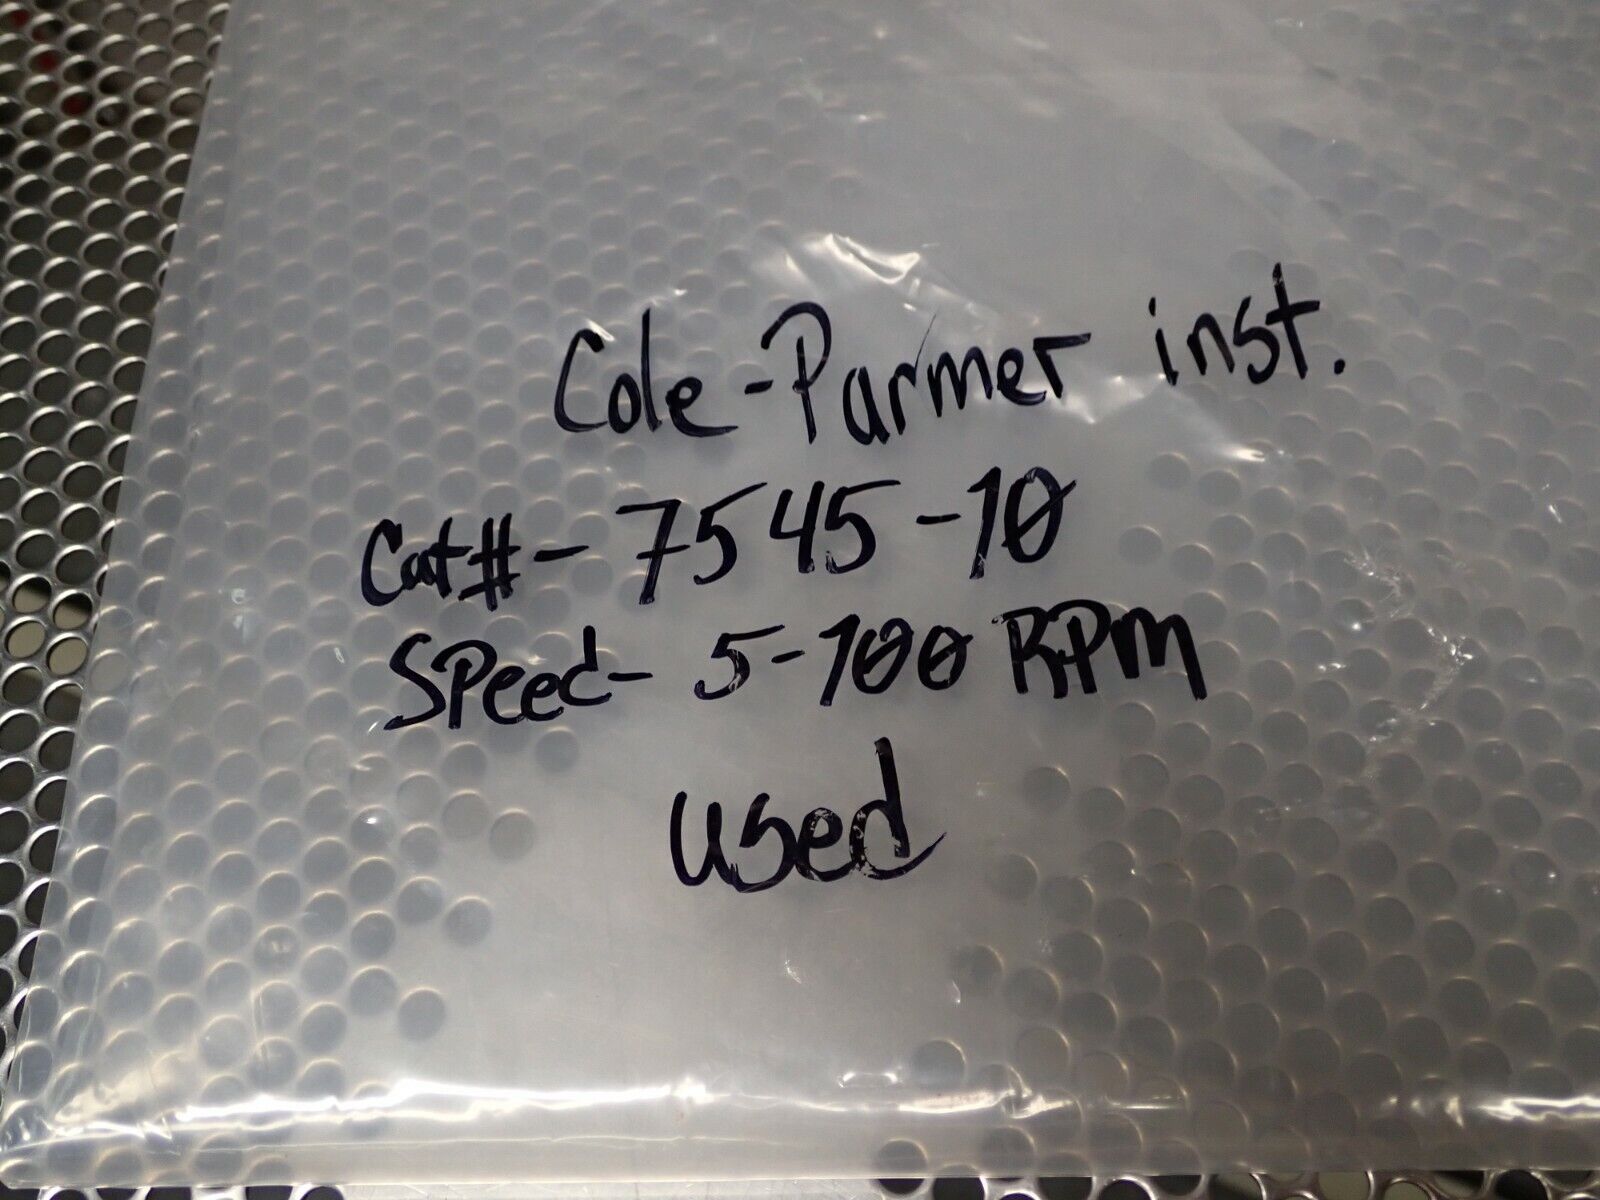 Cole-Parmer inst.
Cat#- 7545-10
Speed- 5-100 RPM
used